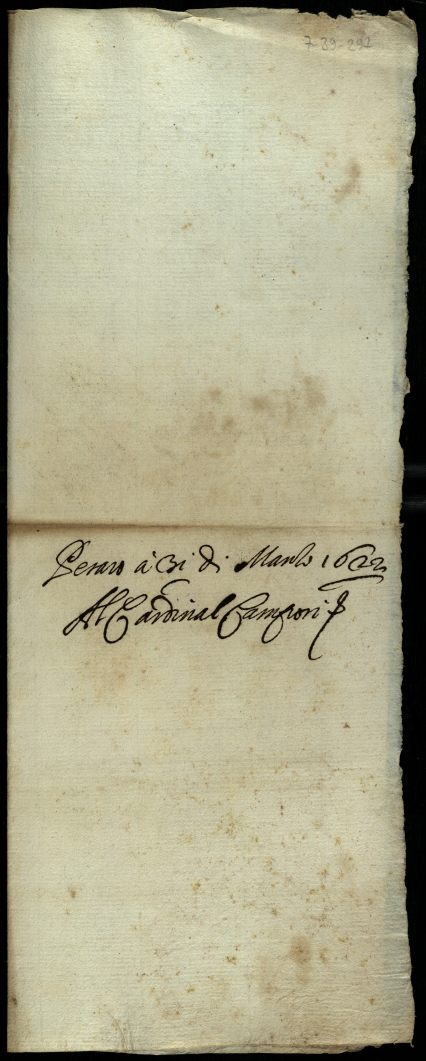 7-39-292
Pesaro à 31 di Marzo 1622
Al Cardinal Campori